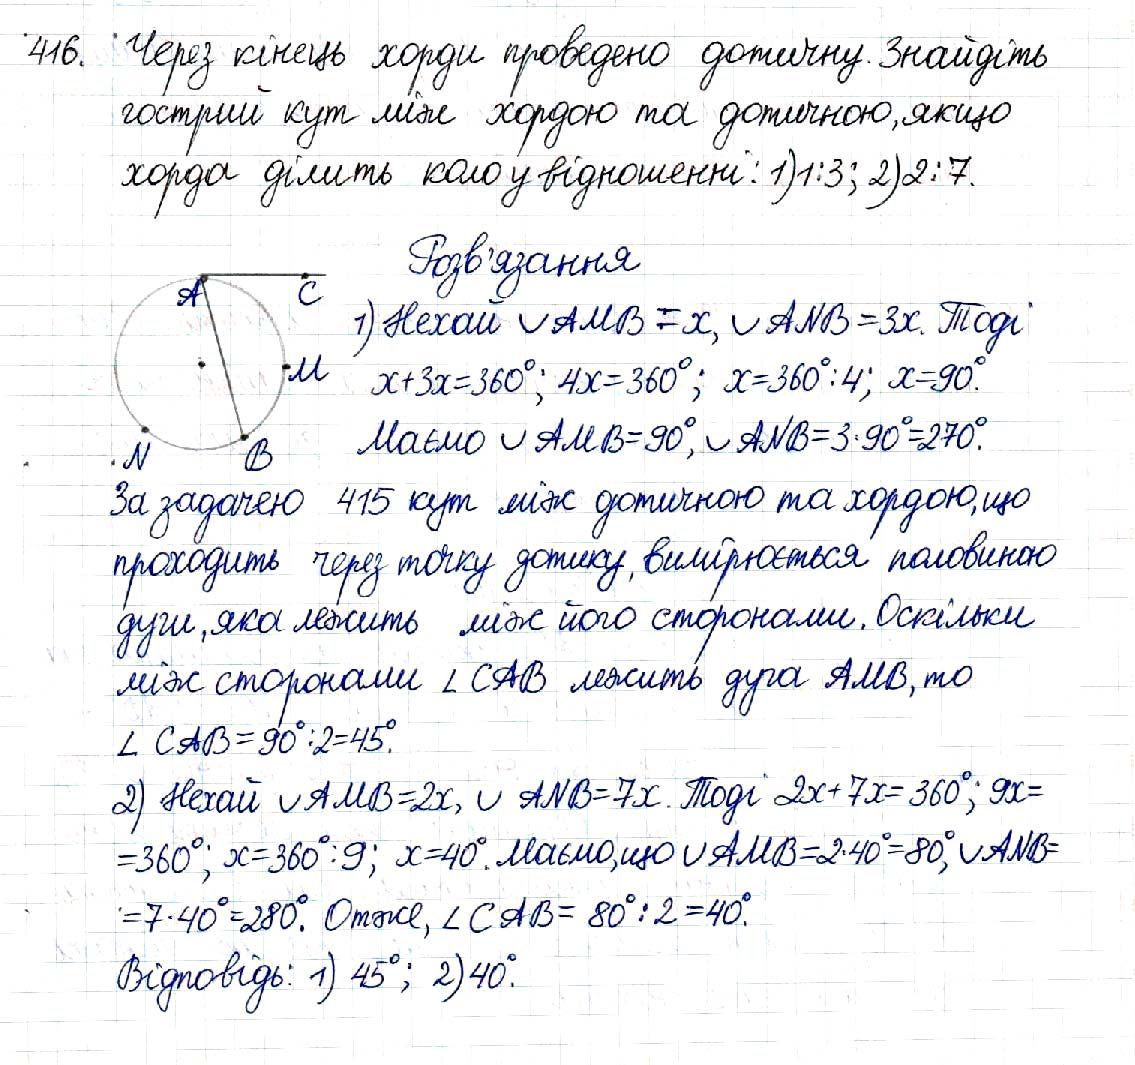 416. Через кінець хорди проведено дотичну. Знайдіть
гострий кут між хордою та дотичною, якщо
хорда ділить коло у відношенні: 1) 1:3; 2) 2:7.
Розв'язання
A
C
M
N
B
1) Нехай ∪ AMB = x, ∪ ANB = 3x. Тоді
x+3x=360°; 4x=360°; x=360°:4; x=90°.
Маємо ∪ AMB=90°, ∪ ANB=3·90°=270°.
За задачею 415 кут між дотичною та хордою, що
проходить через точку дотику, вимірюється половиною
дуги, яка лежить між його сторонами. Оскільки
між сторонами ∠CAB лежить дуга AMB, то
∠ CAB=90°:2=45°.
2) Нехай ∪AMB=2x, ∪ ANB=7x. Тоді 2x+7x=360°; 9x=
=360°; x=360°:9; x=40°. Маємо, що ∪AMB=2·40°=80°, ∪ANB=
=7·40°=280°. Отже, ∠CAB= 80°:2=40°.
Відповідь: 1) 45°; 2) 40°.